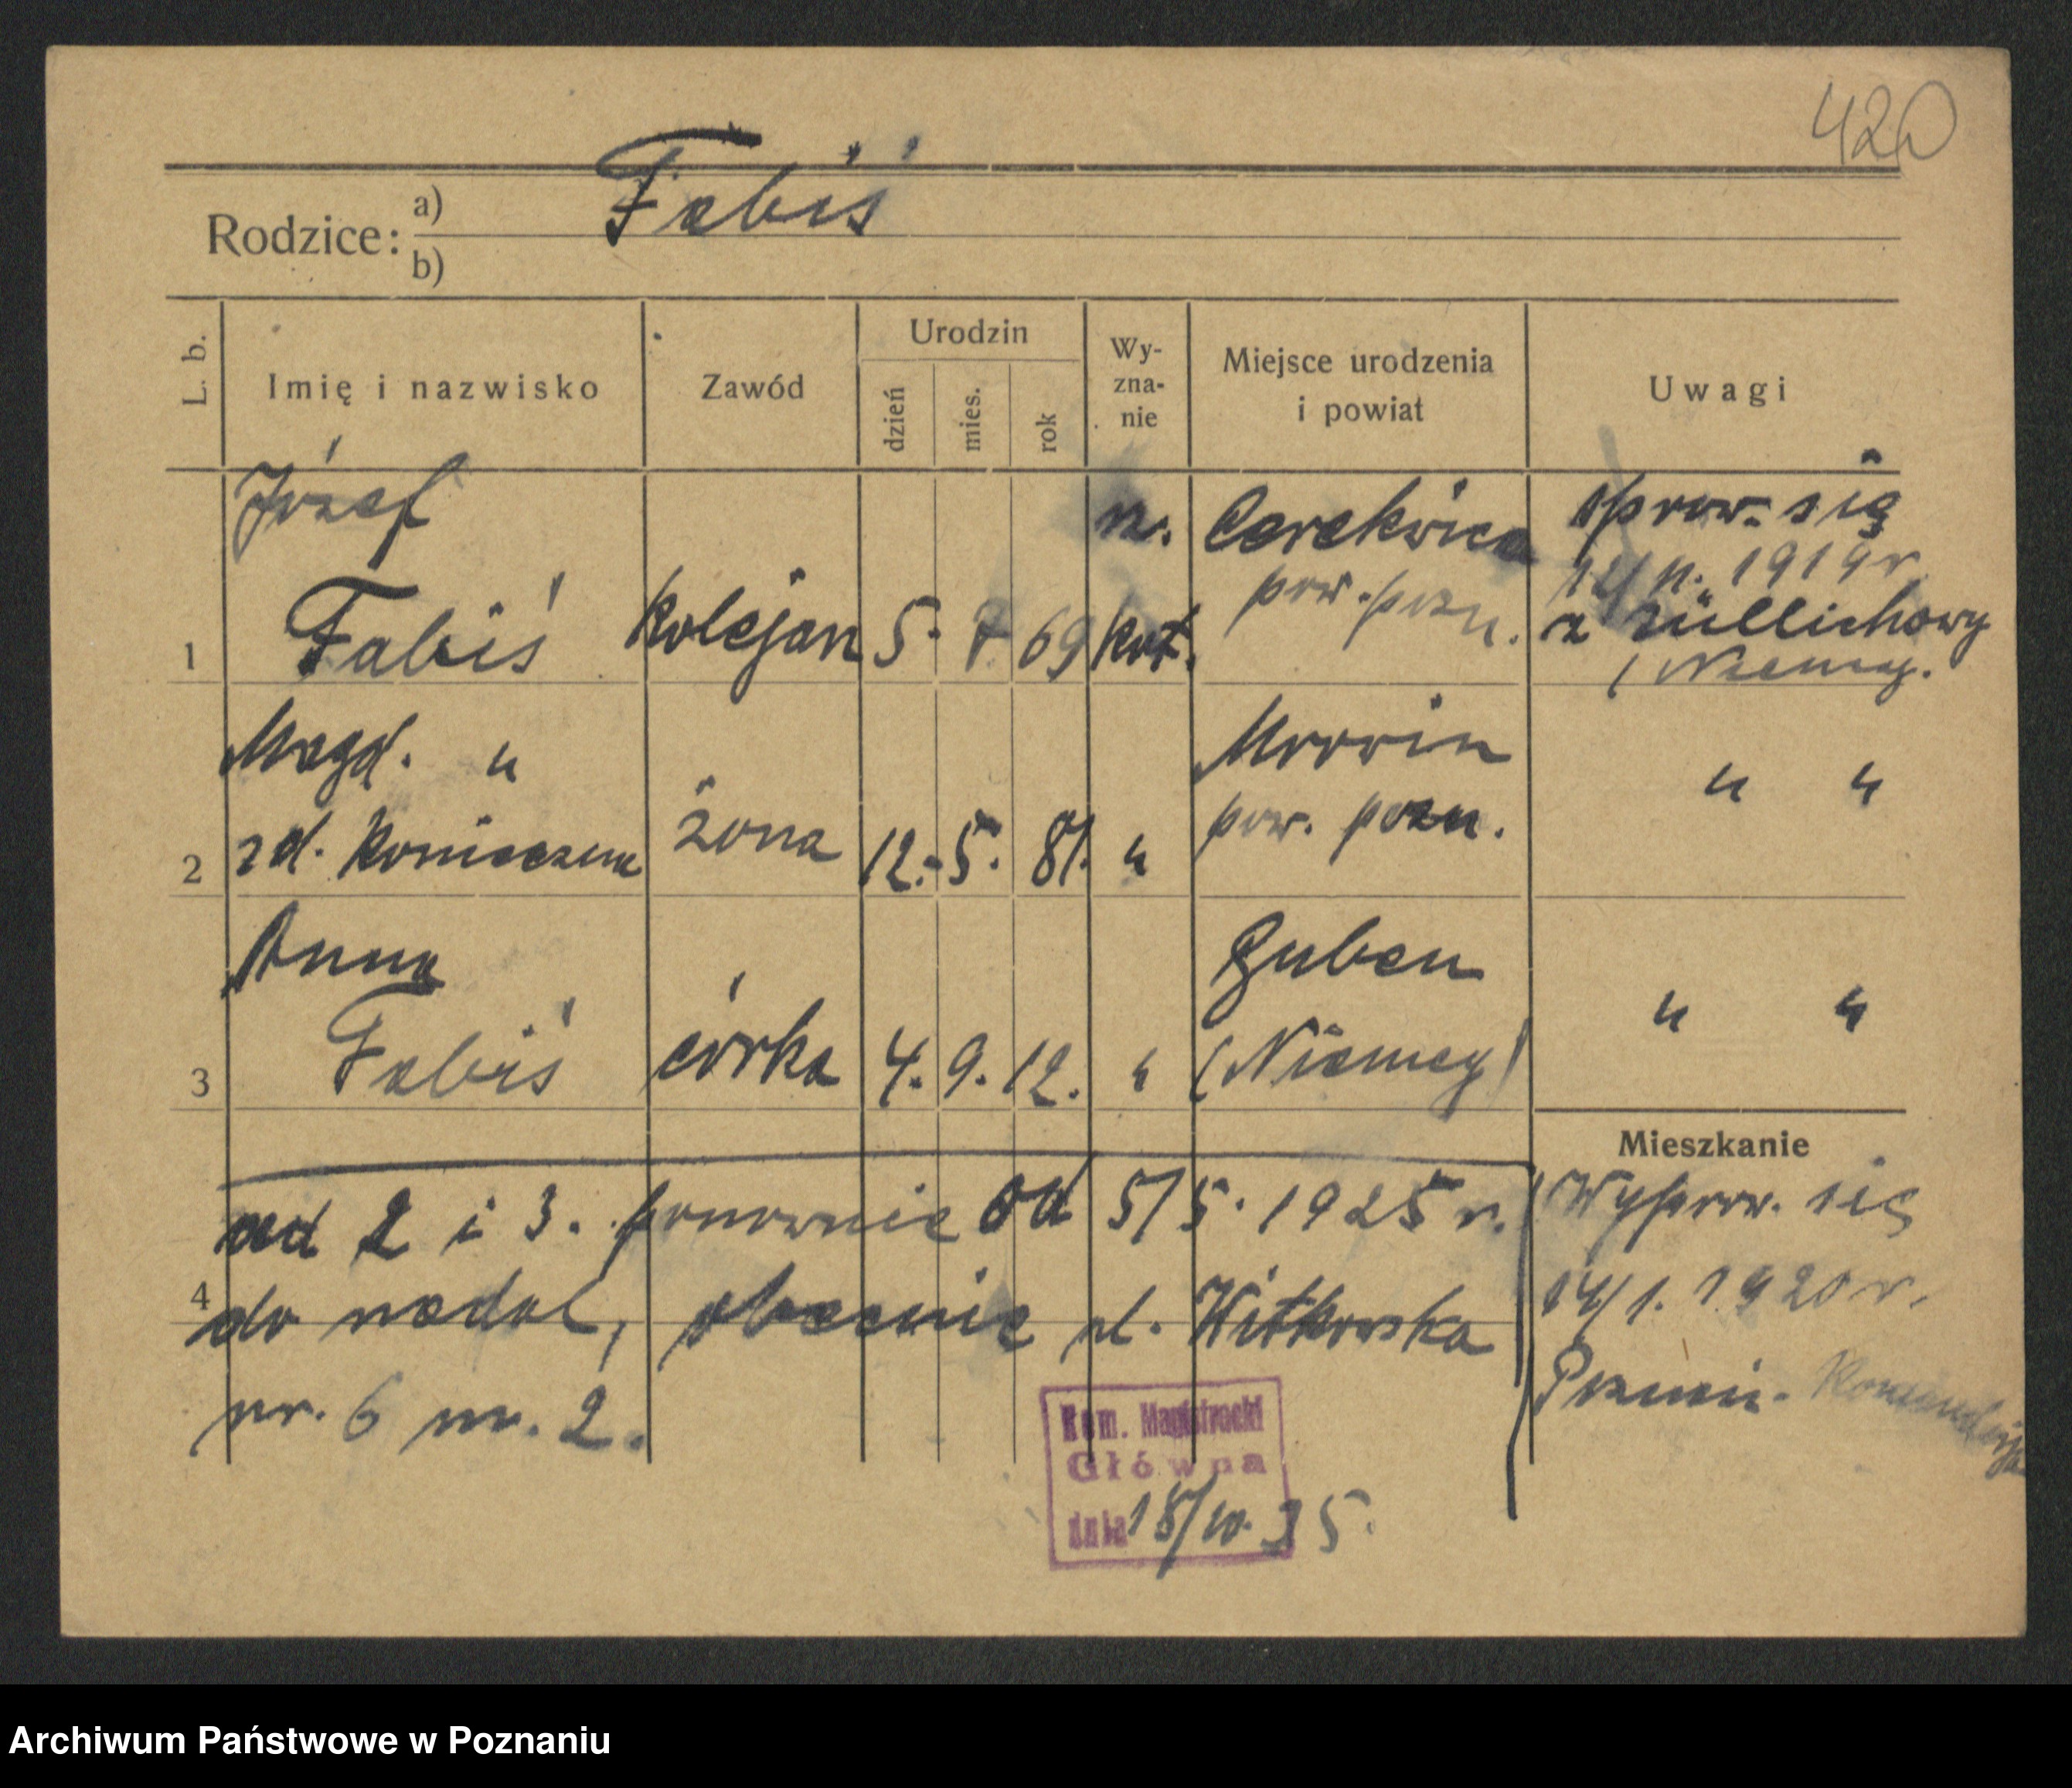 420
Rodzice: a) Fabiś
b)
L. b. Imię i nazwisko Zawód Urodzin dzień mies. rok Wy-zna-nie Miejsce urodzenia i powiat Uwagi
Józef
Fabiś
1
kolejarz 5. 7. 69
rz.
kat.
Cerekwica
pow. pozn.
sprow. się
1919 r.
z Züllichowy
(Niemcy.
Magd. "
zd.
2
żona 12. 5. 81. "
pow. pozn.
" "
Anna
Fabiś
3
córka 4. 9. 12. "
Guben
(Niemcy)
" "
4
ad 2 i 3. ponownie od 5/5. 1925 r.
do nadal, obecnie ul. Witkowska
nr. 6 m. 2.
Mieszkanie
Wyprow. się
14/1. 1920 r.
Poznań.
Kom. Magistracki
Główna
dnia 18/10. 35.
Archiwum Państwowe w Poznaniu